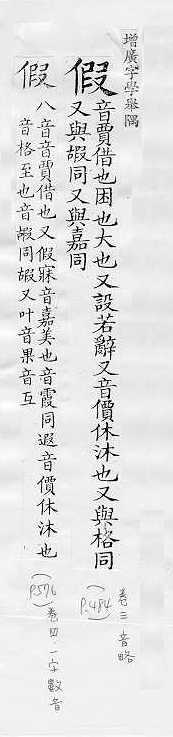 增廣字學舉隅
假 音賈借也困也大也又設若辭又音價休沐也又與格同
又與嘏同又與嘉同
卷三 音略
(P.484)
假 八音音賈借也又假寐音嘉美也音霞同遐音價休沐也
音格至也音嘏同嘏又叶音果音互
(P.576)
卷四·一字數音